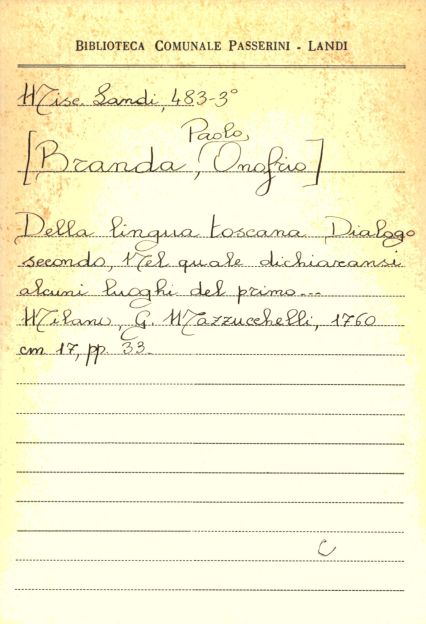 BIBLIOTECA COMUNALE PASSERINI - LANDI
Misc. Landi, 483-3°
Paolo,
[Branda, Onofrio]
Della lingua toscana Dialogo
secondo, Nel quale dichiaransi
alcuni luoghi del primo...
Milano, G. Mazzucchelli, 1760
cm 17, pp. 33.
C